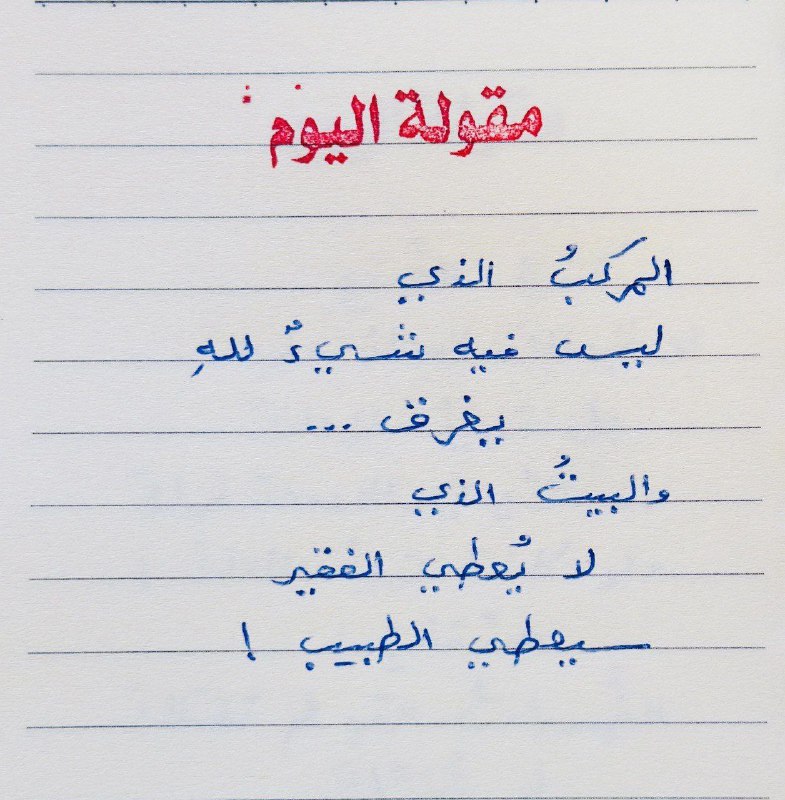 مقولة اليوم :
المركبُ الذي
ليس فيه شيءٌ للهِ
يغرق ...
والبيتُ الذي
لا يُعطي الفقير
سيعطي الطبيب !